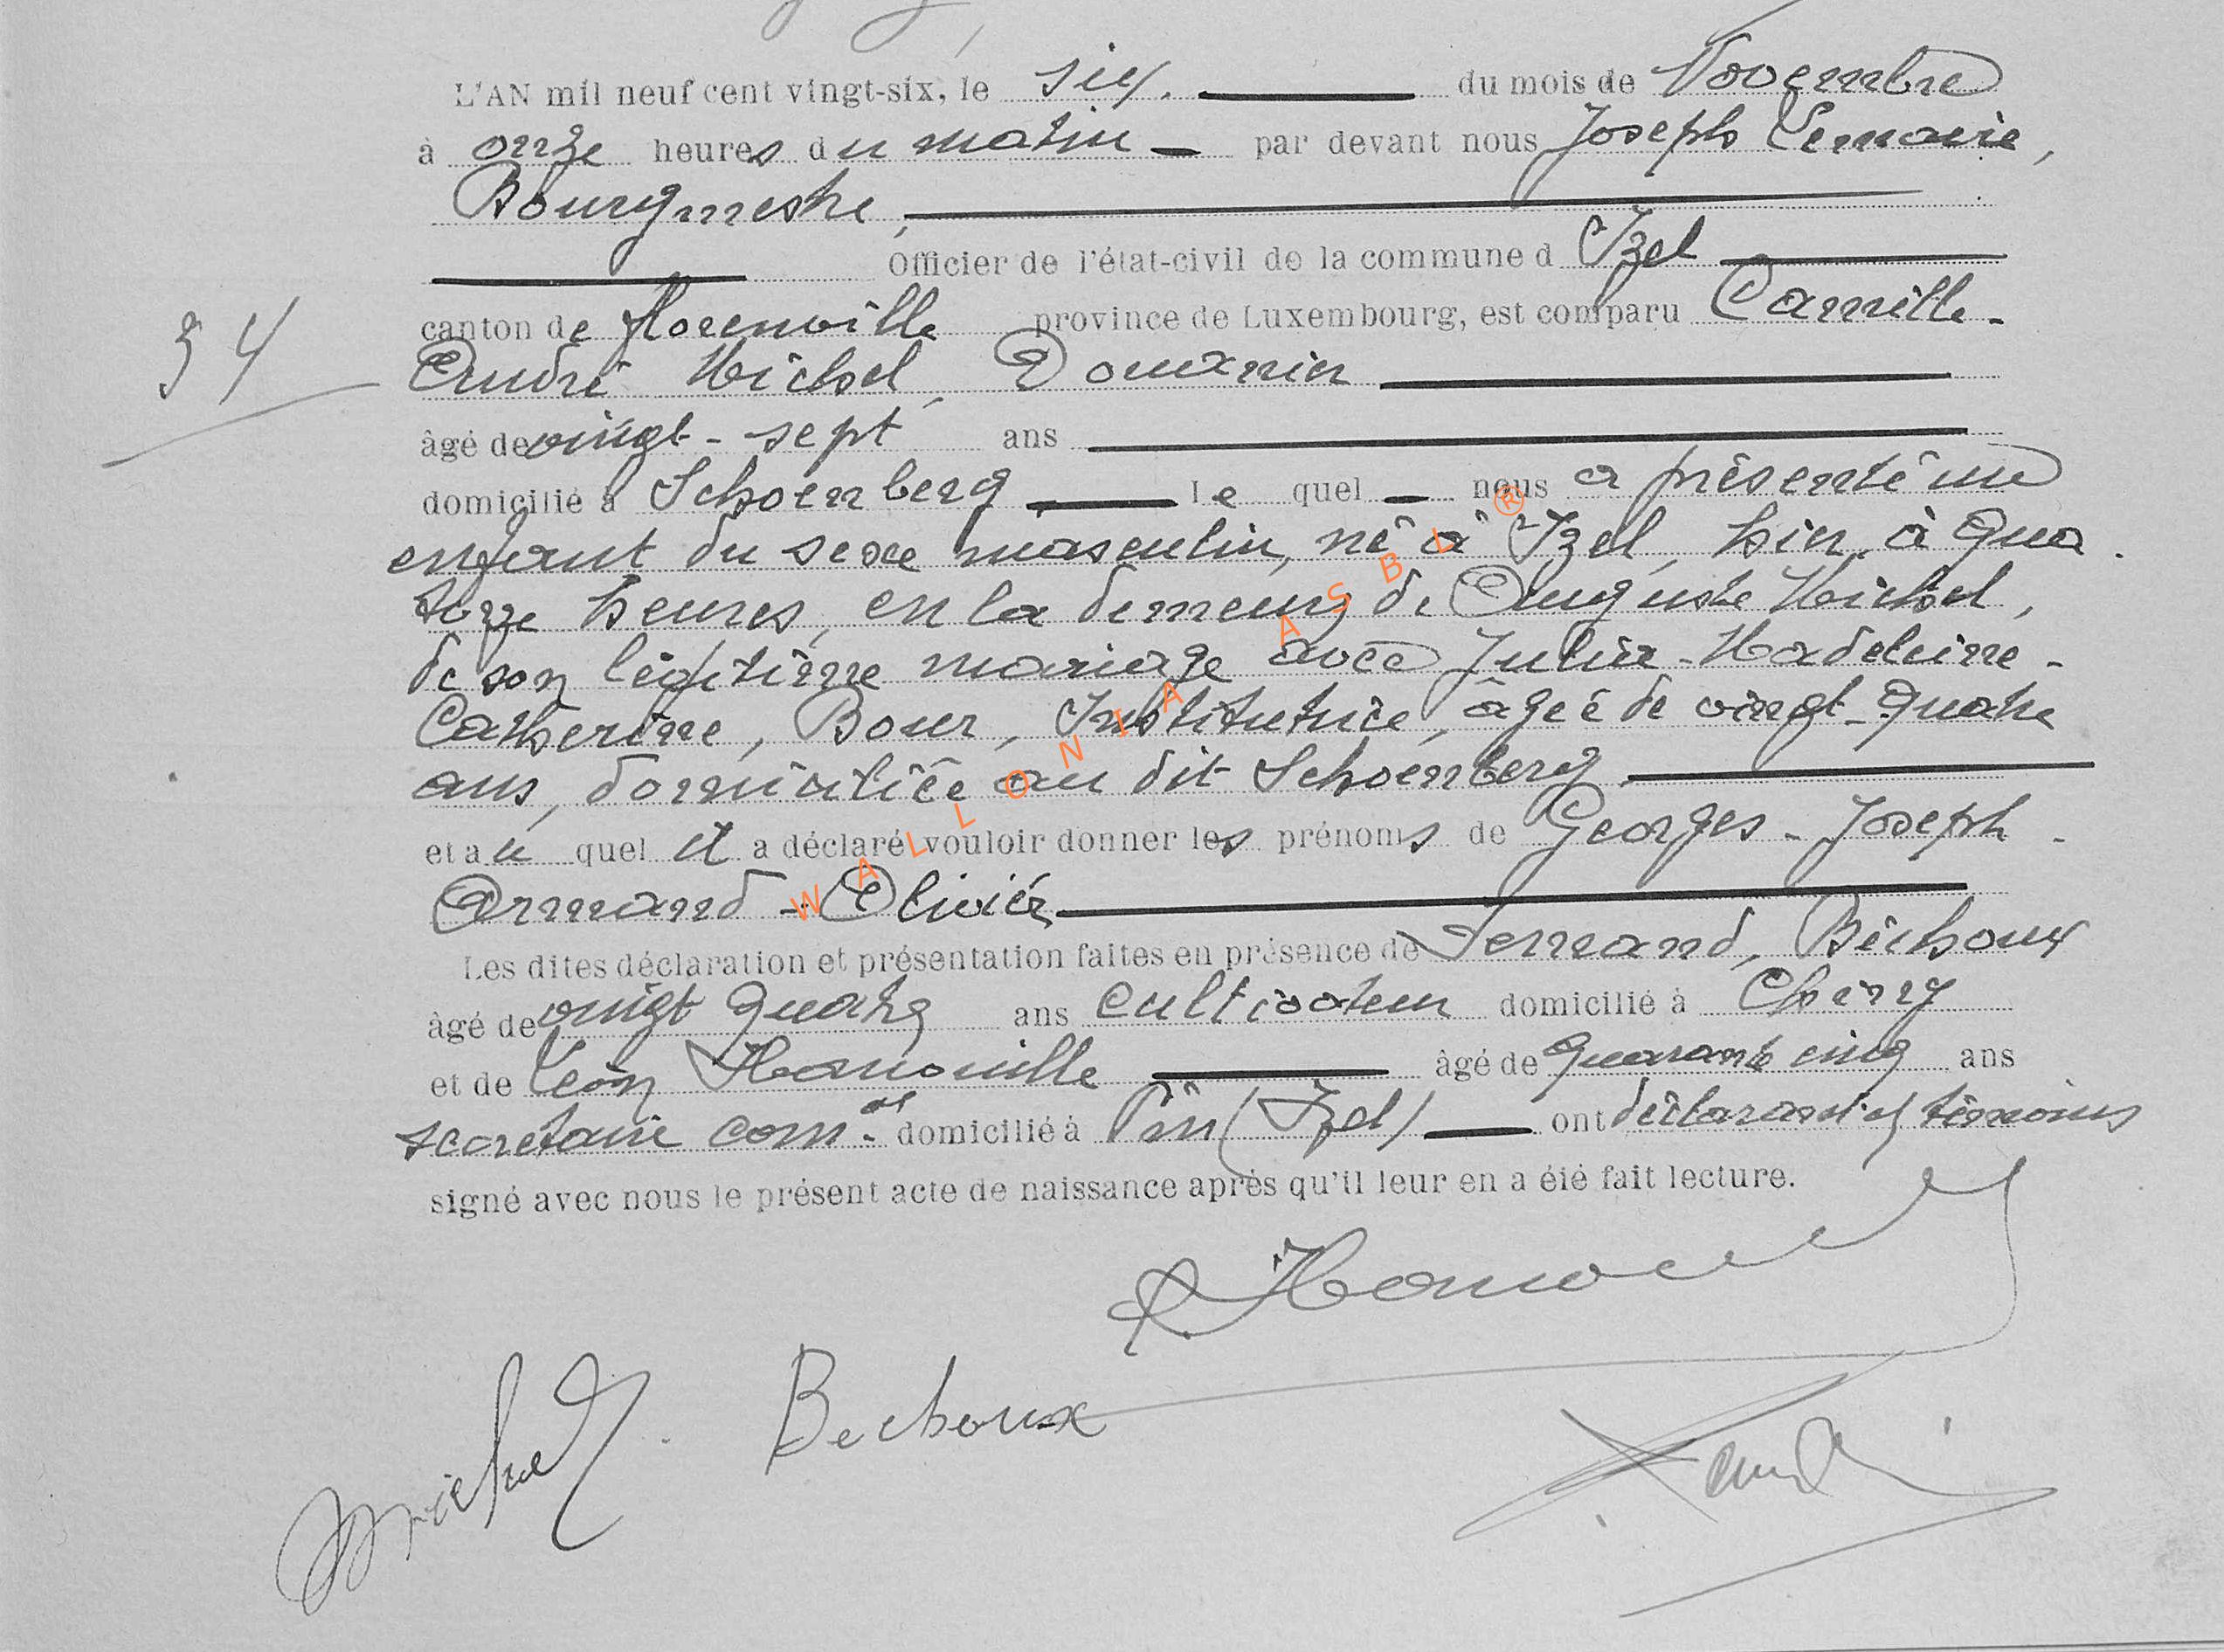 L'AN mil neuf cent vingt-six, le six. du mois de Novembre
à onze heures du matin par devant nous Joseph Lemaire,
Bourgmestre,
Officier de l'état-civil de la commune d Izel
canton de Florenville province de Luxembourg, est comparu Camille-
34
André Michel, Douanier
âgé de vingt-sept ans
domicilié à Schoenberg Le quel nous a présenté un
enfant du sexe masculin, né à Izel, hier, à qua
torze heures, en la demeure de Auguste Michel,
de son légitime mariage avec Julie-Madeleine-
Catherine, Bour, Institutrice, âgée de vingt-quatre
ans, domiciliée au dit Schoenberg
et au quel il a déclaré vouloir donner les prénoms de Georges-Joseph-
Armand-Olivier
Les dites déclaration et présentation faites en présence de Fernand, Béchoux
âgé de vingt quatre ans cultivateur domicilié à Cherry
et de Léon Hanouille âgé de quarante cinq ans
secretaire com.al domicilié à Pin (Izel) ont déclarant et témoins
signé avec nous le présent acte de naissance après qu'il leur en a été fait lecture.
Michel. Bechoux
WALLONIA ASBL ®